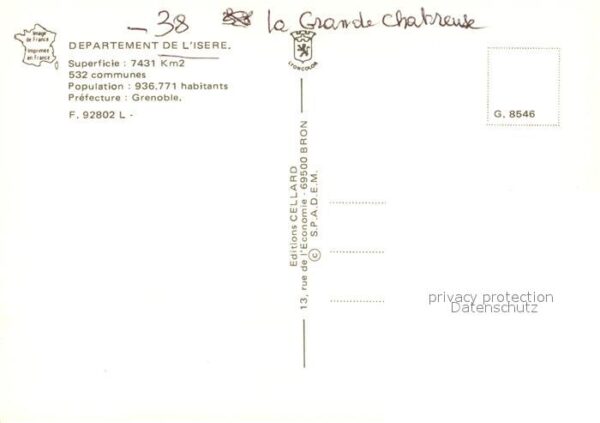 - 38 la Grande Chatreuse
Image
de France
imprimée
en France
DEPARTEMENT DE L'ISERE.
Superficie : 7431 Km2
532 communes
Population : 936.771 habitants
Préfecture : Grenoble.
F. 92802 L -
LYONCOLOR
G. 8546
Editions CELLARD
13, rue de l'Economie - 69500 BRON
© S.P.A.D.E.M.
privacy protection
Datenschutz